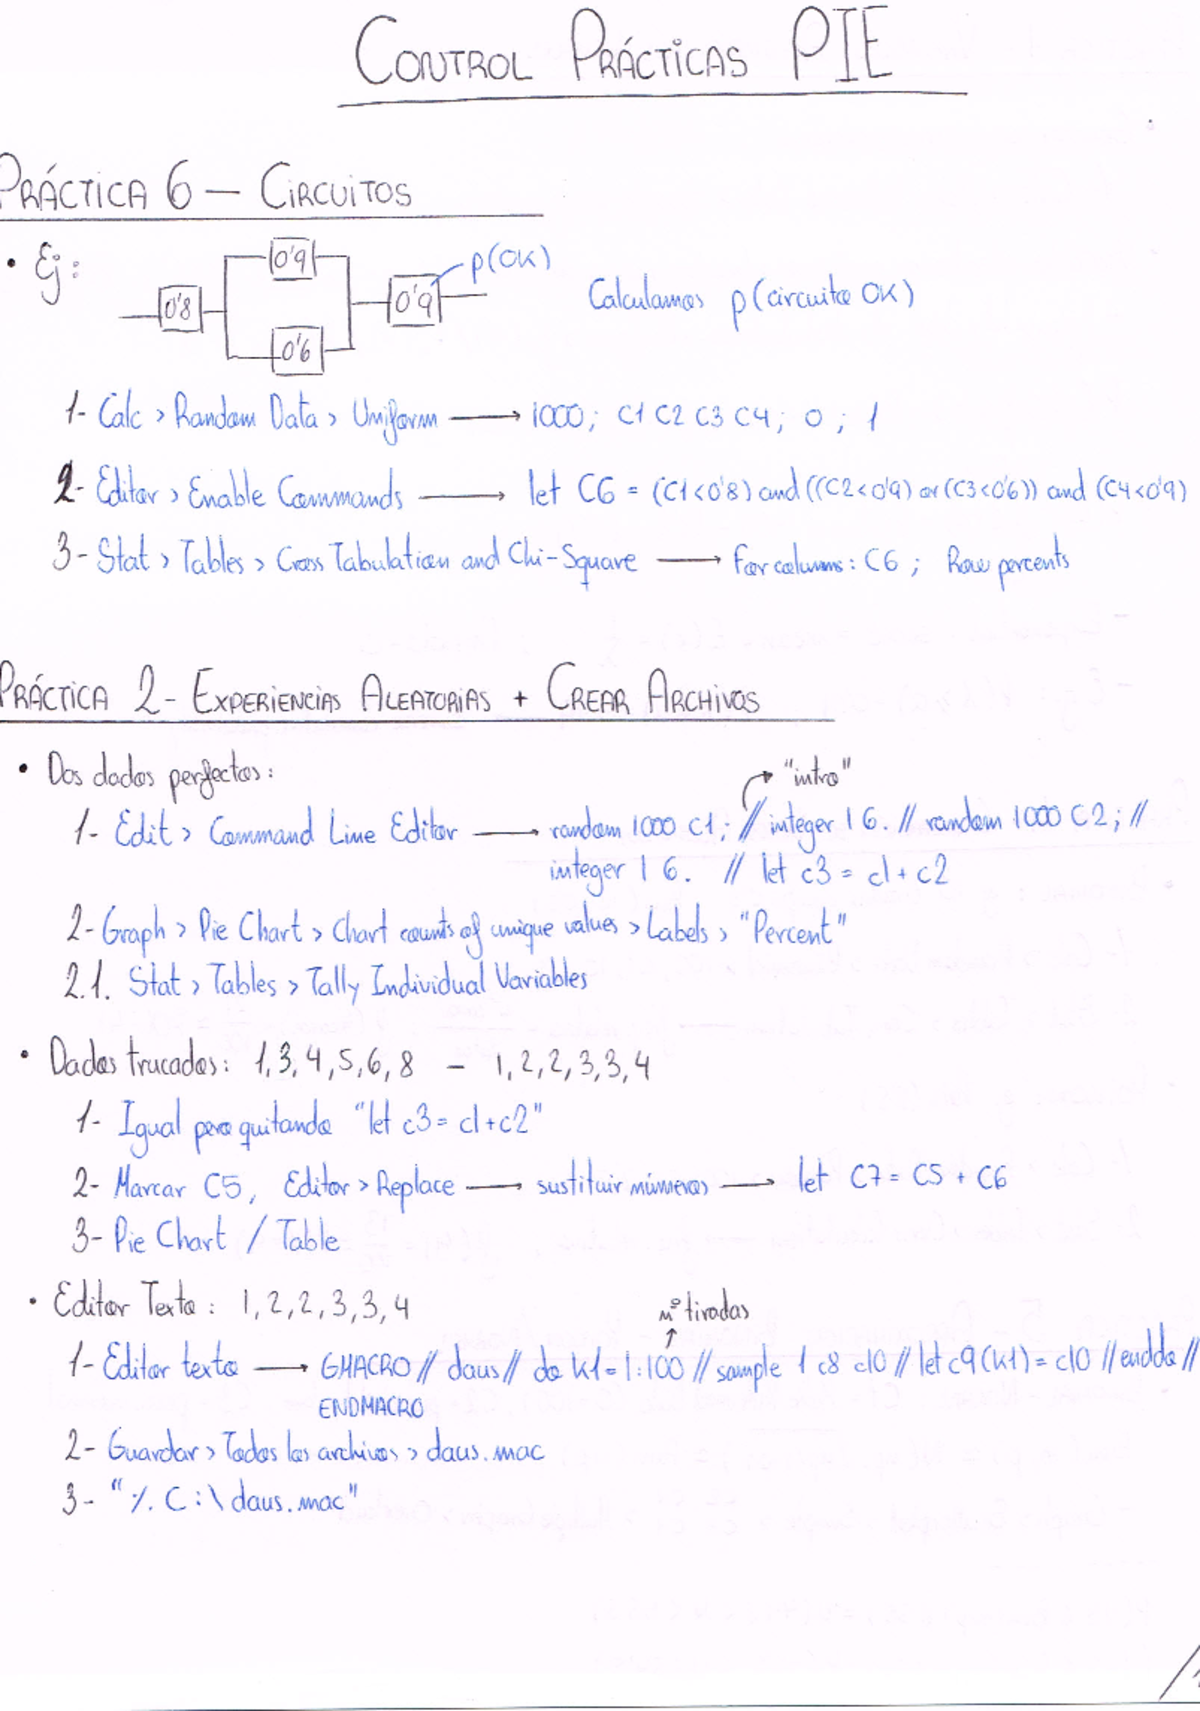 CONTROL PRÁCTICAS PIE
PRÁCTICA 6 — CIRCUITOS
• Ej:
0'8
0'9
0'6
0'9
p(OK)
Calculamos p(circuito OK)
1- Calc > Random Data > Uniform ⟶ 1000; C1 C2 C3 C4; 0; 1
2- Editor > Enable Commands ⟶ let C6 = (C1<0'8) and ((C2<0'9) or (C3<0'6)) and (C4<0'9)
3- Stat > Tables > Cross Tabulation and Chi-Square ⟶ For columns: C6; Row percents
PRÁCTICA 2- EXPERIENCIAS ALEATORIAS + CREAR ARCHIVOS
• Dos dados perfectos:
"intro"
1- Edit > Command Line Editor ⟶ random 1000 c1; // integer 1 6. // random 1000 C2; //
integer 1 6. // let c3 = c1 + c2
2- Graph > Pie Chart > Chart counts of unique values > Labels > "Percent"
2.1. Stat > Tables > Tally Individual Variables
• Dados trucados: 1,3,4,5,6,8 - 1,2,2,3,3,4
1- Igual pero quitando "let c3= c1+c2"
2- Marcar C5, Editor > Replace ⟶ sustituir números ⟶ let C7= C5 + C6
3- Pie Chart / Table
• Editor Texto: 1,2,2,3,3,4
nº tiradas
1- Editor texto ⟶ GMACRO // daus // do k1=1:100 // sample 1 c8 c10 // let c9(k1)= c10 // enddo //
ENDMACRO
2- Guardar > Todos los archivos > daus.mac
3- "%. C:\daus.mac"